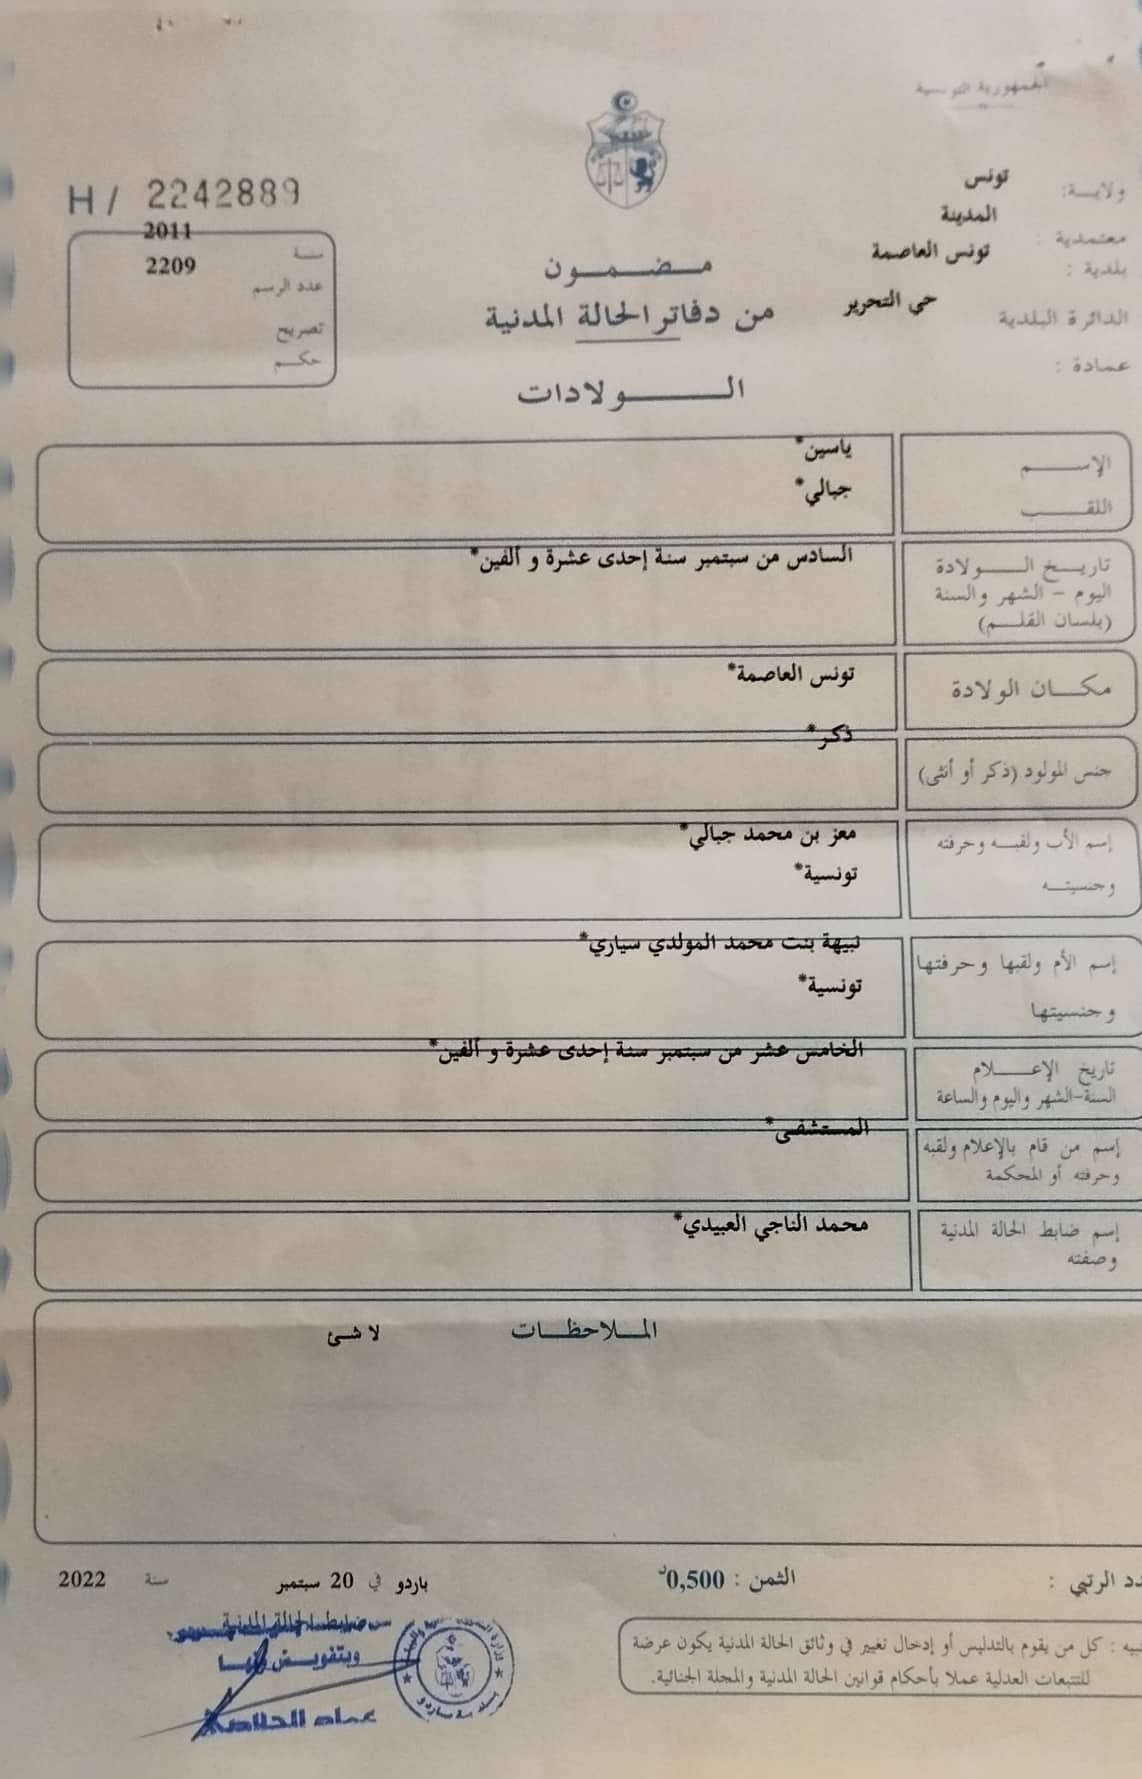 الجمهورية التونسية
ولايـــة: تونس
معتمدية : المدينة
بلدية : تونس العاصمة
الدائرة البلدية حي التحرير
عمادة :
H / 2242889
سنة 2011
عدد الرسم 2209
تصريح
حكـــم
مـــضـــمـــون
من دفاتر الحالة المدنية
الـــــولادات
الإســـــم ياسين*
اللقـــب جبالي*
تاريـــخ الـــولادة السادس من سبتمبر سنة إحدى عشرة و ألفين*
اليوم - الشهر والسنة
(بلسان القلـــم)
مكـــان الولادة تونس العاصمة*
جنس المولود (ذكر أو أنثى) ذكر*
إسم الأب ولقبـــه وحرفته معز بن محمد جبالي*
وجنسيتـــه تونسية*
إسم الأم ولقبها وحرفتها نبيهة بنت محمد المولدي سياري*
وجنسيتها تونسية*
تاريخ الإعـــلام الخامس عشر من سبتمبر سنة إحدى عشرة و ألفين*
السنة-الشهر واليوم والساعة
إسم من قام بالإعلام ولقبه المستشفى*
وحرفته أو المحكمة
إسم ضابط الحالة المدنية محمد الناجي العبيدي*
وصفته
المـــلاحظـــات لا شئ
دد الرتبي :
الثمن : 0,500د
باردو في 20 سبتمبر سنة 2022
بيه : كل من يقوم بالتدليس أو إدخال تغيير في وثائق الحالة المدنية يكون عرضة
للتتبعات العدلية عملا بأحكام قوانين الحالة المدنية والمجلة الجنائية.
ضابط الحالة المدنية
وبتفويض منها
عماد